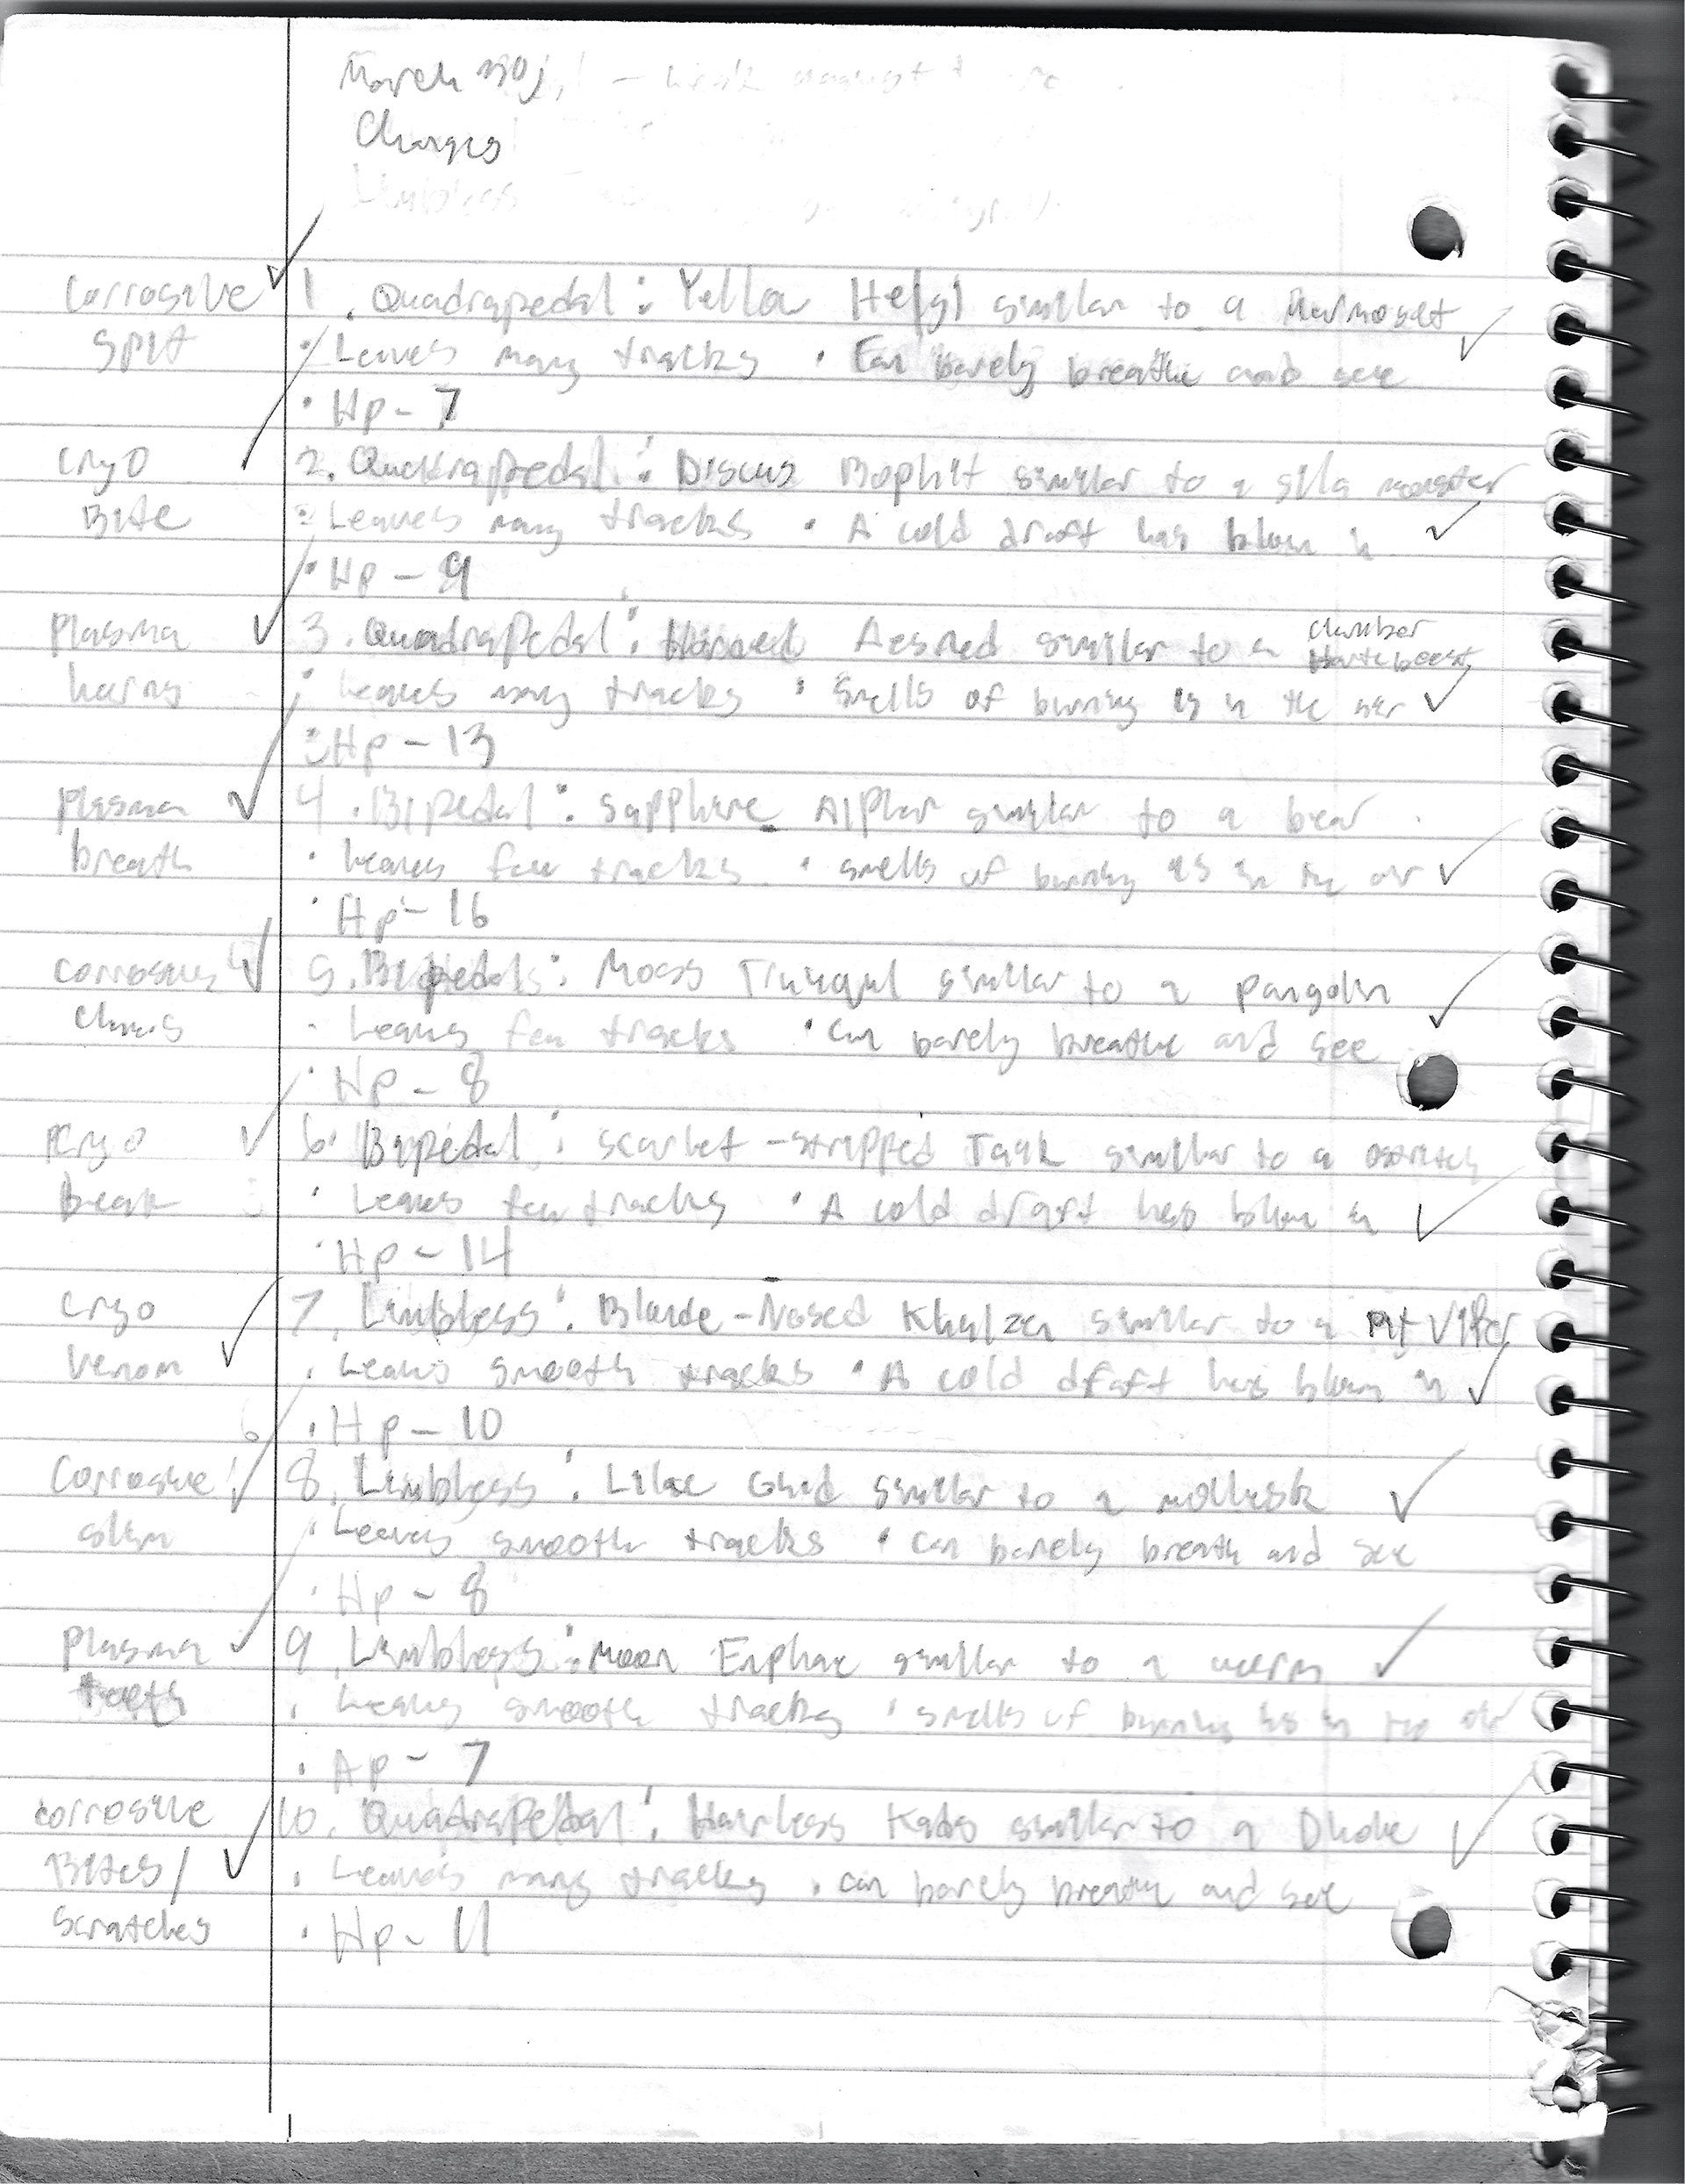 March
Changes
Limbless
Corrosive 1. Quadrapedal: Yellow similar to a Marmoset
Spit Leaves many tracks • Can barely breathe and see
• Hp - 7
Cryo 2. Quadrapedal: Discus Bophit similar to a gila monster
Bite Leaves many tracks • A cold draft has blown in
• Hp - 9
Plasma 3. Quadrapedal: Aesned similar to a
horns Leaves many tracks • Smells of burning is in the air
• Hp - 13
Plasma 4. Bipedal: Sapphire Alphar similar to a bear
breath • Leaves few tracks • smells of burning is in the air
• Hp - 16
Corrosive 5. Bipedal: Moss similar to a pangolin
claws - Leaves few tracks • Can barely breathe and see
• Hp - 8
Cryo 6. Bipedal: Scarlet-stripped Task similar to a ostrich
beak • Leaves few tracks • A cold draft has blown in
• Hp - 14
Cryo 7. Limbless: -Nosed Khalzen similar to a Pit Viper
Venom • Leaves smooth tracks • A cold draft has blown in
• Hp - 10
Corrosive 8. Limbless: Lilac Ghid similar to a mollusk
• Leaves smooth tracks • Can barely breath and see
• Hp - 8
Plasma 9. Limbless: Moon Enphae similar to a worm
teeth • Leaves smooth tracks • smells of burning is in the air
• Hp - 7
corrosive 10. Quadrapedal: Hairless Kados similar to a Dhole
Bites/ • Leaves many tracks • can barely breath and see
Scratches • Hp - 11